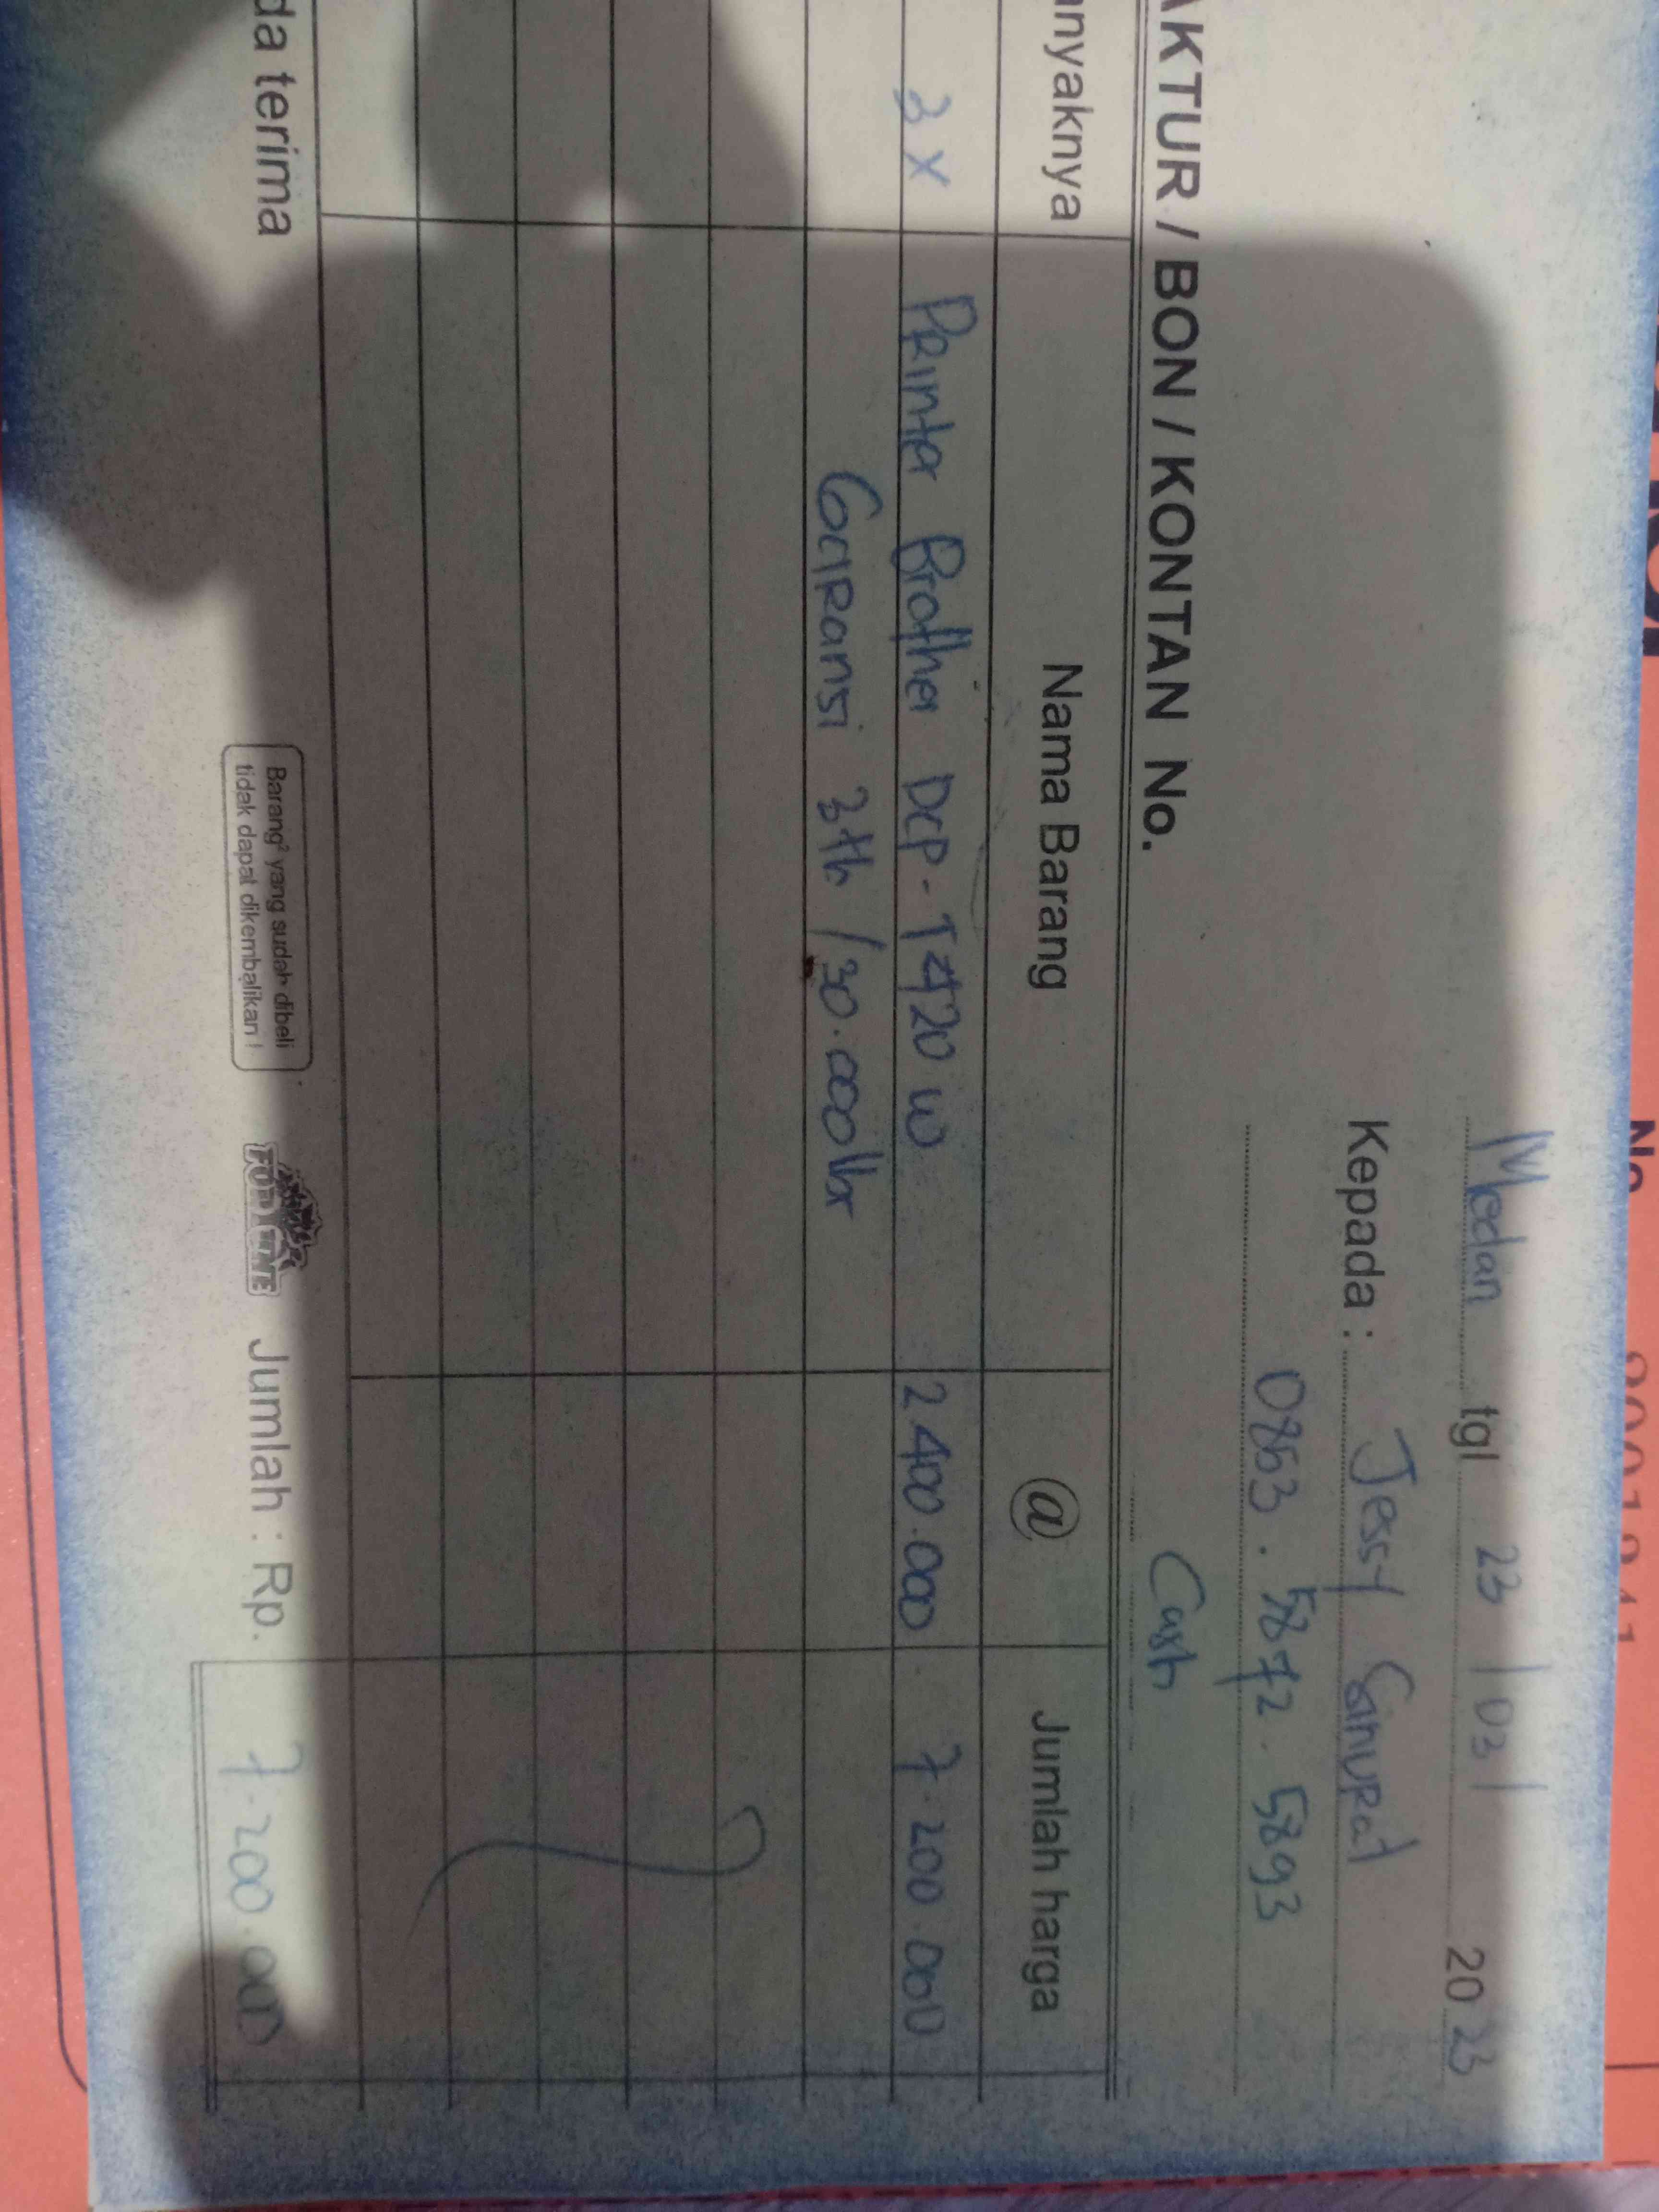 Medan tgl 23 / 03 / 20 23
Kepada : Jessy Sinurat
0853 . 5872 . 5893
AKTUR / BON / KONTAN No. Cash
anyaknya Nama Barang @ Jumlah harga
3 x Printer Brother DCP - T420 W 2.400.000 7.200.000
Garansi 3th / 30.000 lbr
da terima
Barang² yang sudah dibeli
tidak dapat dikembalikan !
FORTUNE
Jumlah : Rp. 7.200.000